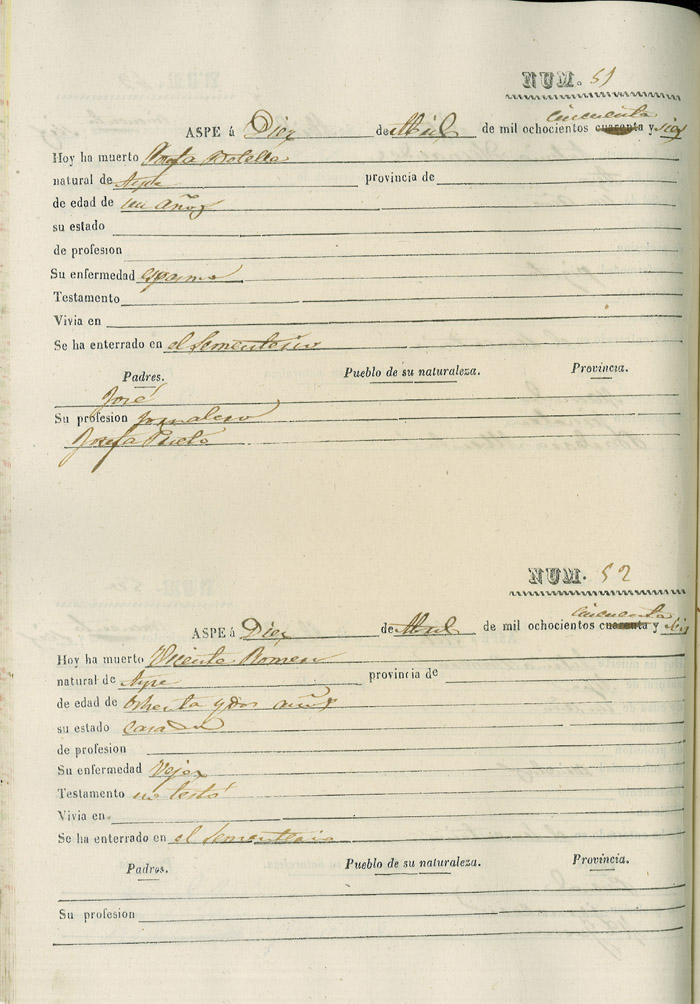 NUM. 51
ASPE á Diez de Abril de mil ochocientos cincuenta cuarenta y seis
Hoy ha muerto Botella
natural de Aspe provincia de
de edad de un años
su estado
de profesion
Su enfermedad espasmo
Testamento
Vivia en
Se ha enterrado en el Sementerio
Padres. Pueblo de su naturaleza. Provincia.
José
Su profesion Jornalero
Josefa Prieto
NUM. 52
ASPE á Diez de Abril de mil ochocientos cincuenta cuarenta y seis
Hoy ha muerto Vicenta Romero
natural de Aspe provincia de
de edad de ochenta y dos años
su estado casada
de profesion
Su enfermedad Vejez
Testamento no testó
Vivia en
Se ha enterrado en el Sementerio
Padres. Pueblo de su naturaleza. Provincia.
Su profesion